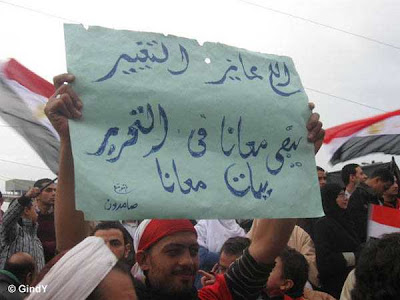 اللى عايز التغيير
يبقى معانا فى التحرير
يبات معانا
التوقيع
صامدون
© GindY